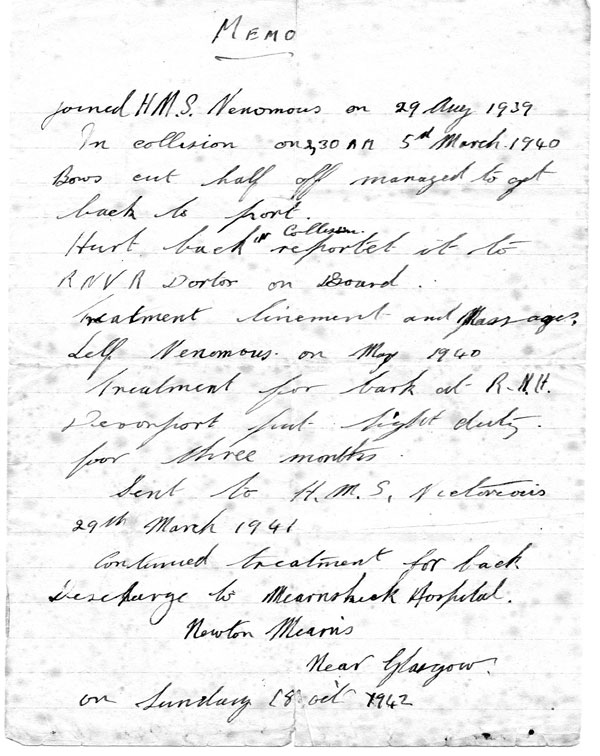 MEMO
joined H.M.S. Venomous on 29 Aug 1939
In collision on 2,30 AM 5th March. 1940
Bows cut half off managed to get
back to port.
Hurt back in Collision. reportet it to
R N V R Dortor on Board.
treatment linement and Massages.
Left Venomous. on May 1940
treatment for back at R.N.H.
Devonport put light duty.
for three months.
Sent to H.M.S. Victoreous
29th March 1941
Continued treatment for back
Descharge to Mearnskirk Hospital.
Newton Mearns
Near Glasgow.
on Sunday 18 oct 1942